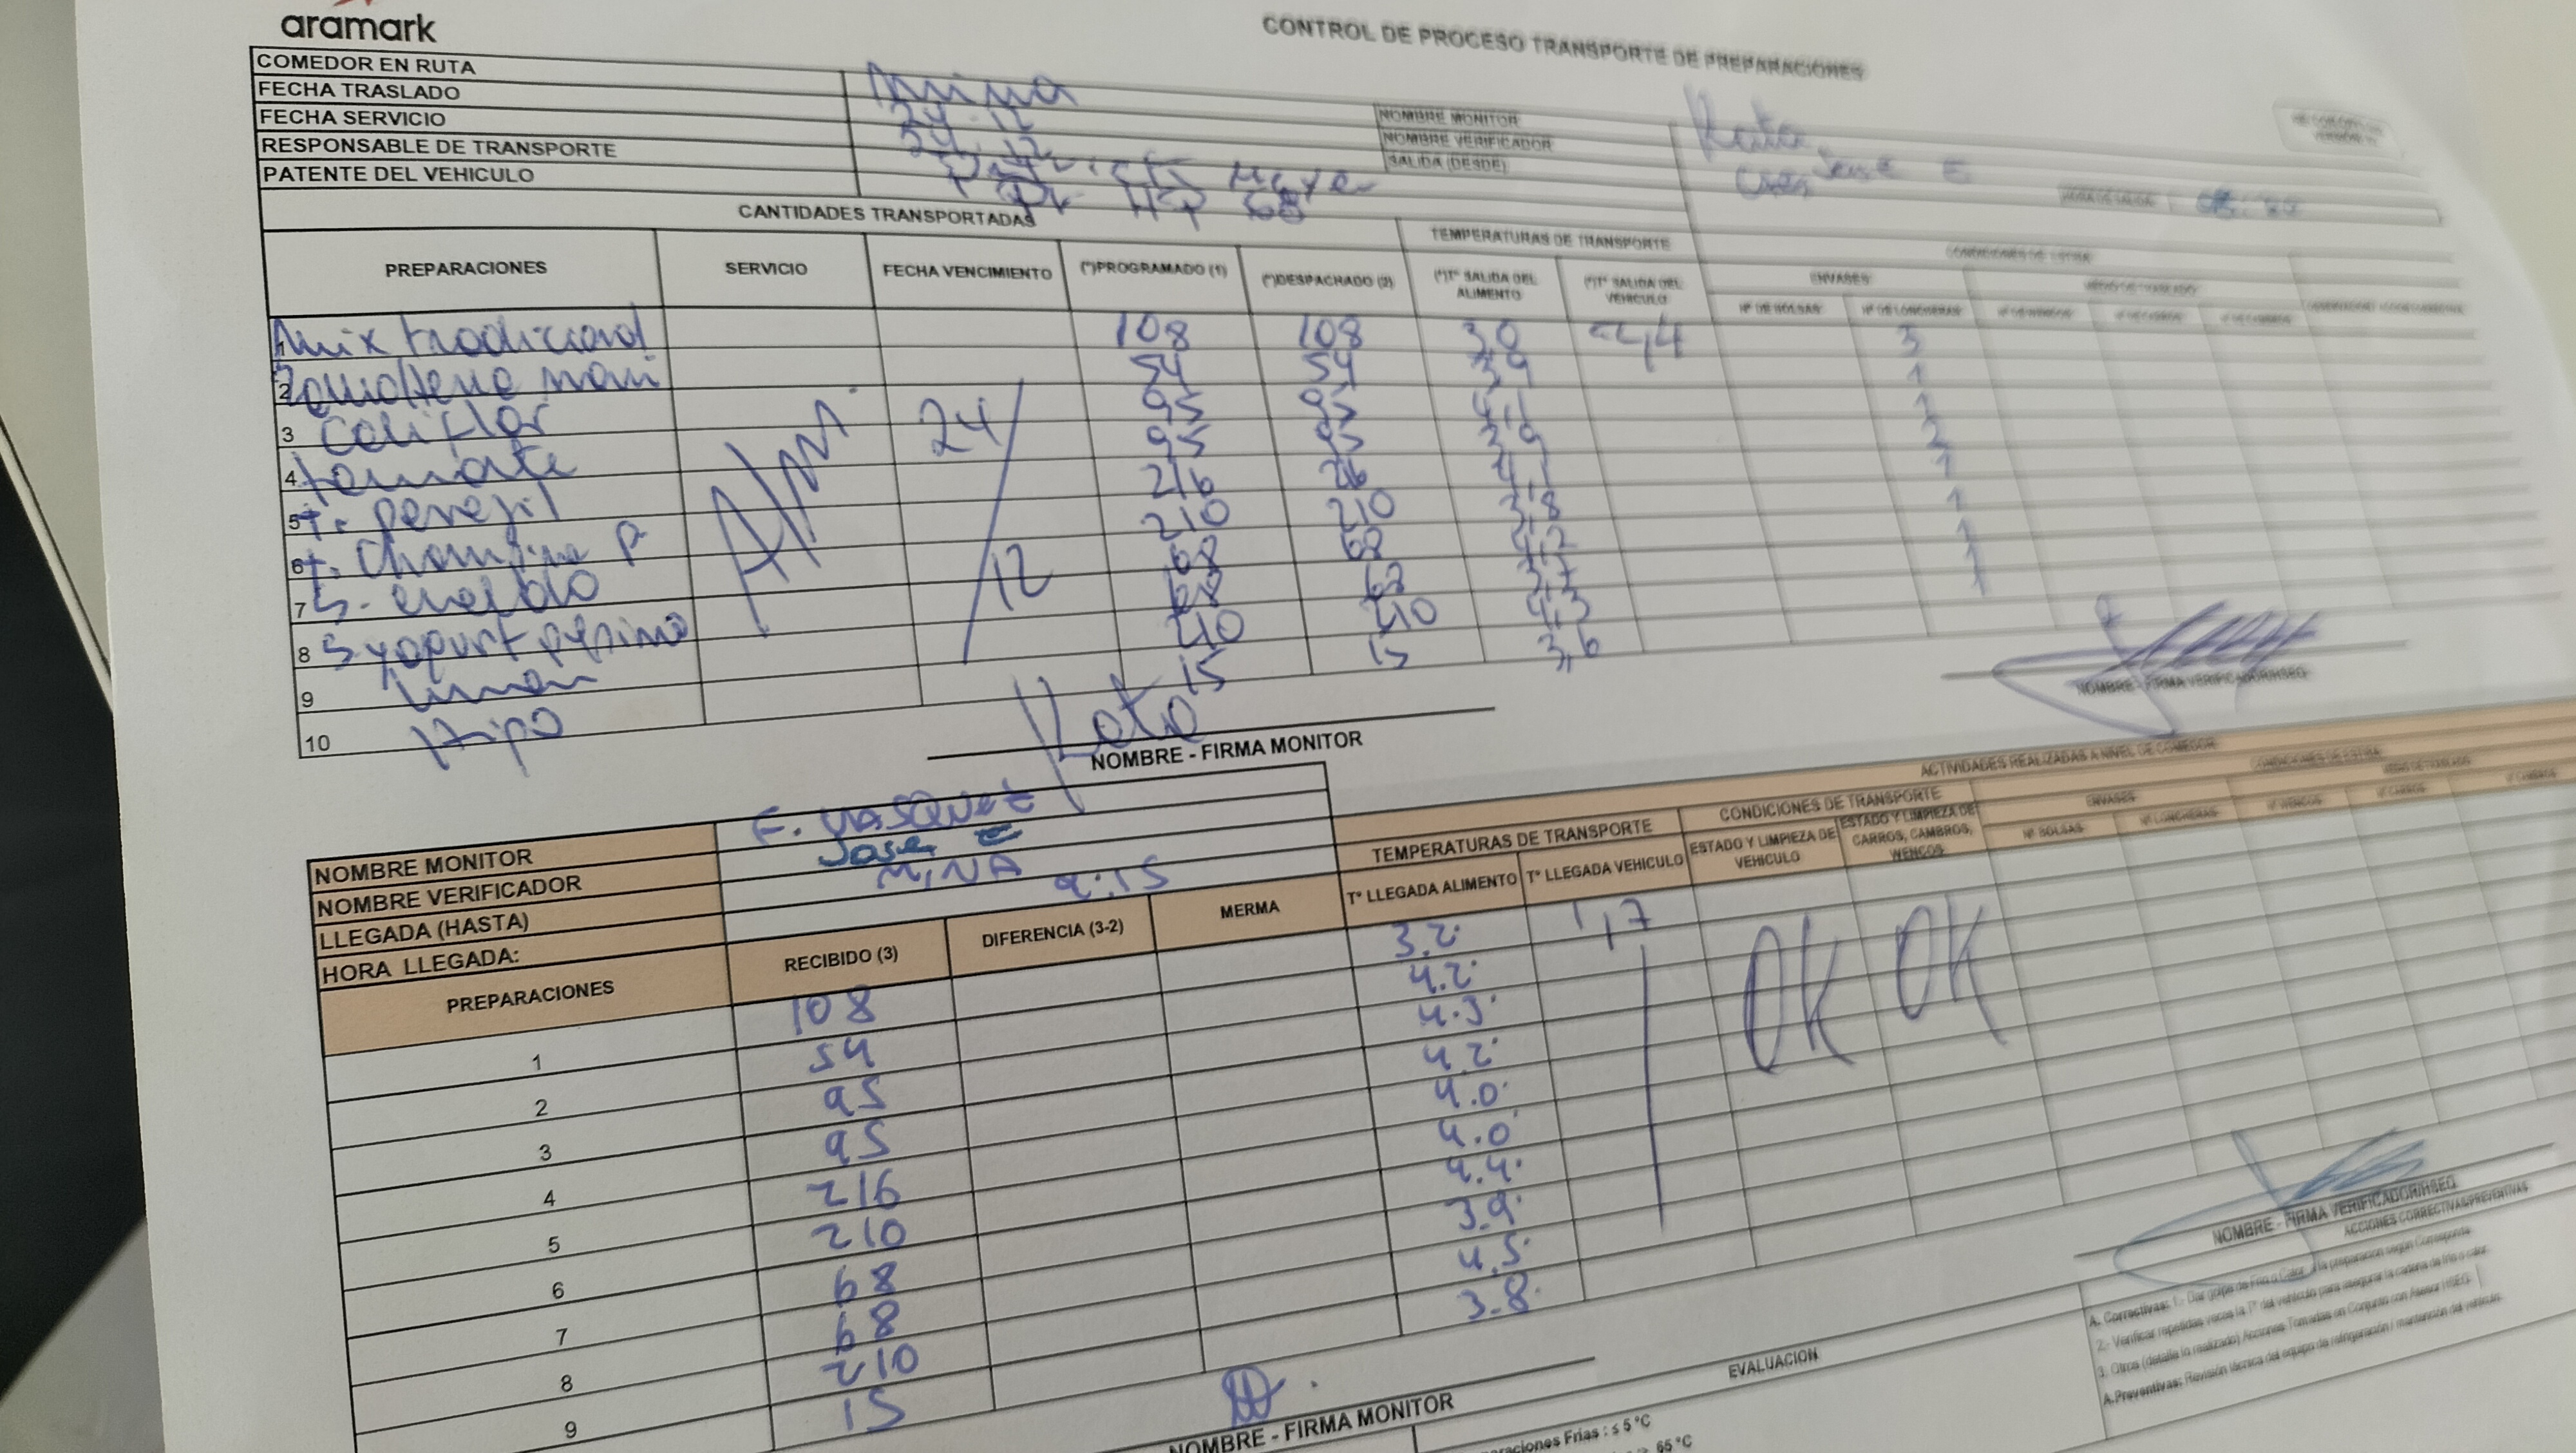 aramark
CONTROL DE PROCESO TRANSPORTE DE PREPARACIONES
COMEDOR EN RUTA Mina
FECHA TRASLADO 24.12
FECHA SERVICIO 24.12
RESPONSABLE DE TRANSPORTE
PATENTE DEL VEHICULO
NOMBRE MONITOR Kata
NOMBRE VERIFICADOR Jose E
SALIDA (DESDE)
HORA DE SALIDA
CANTIDADES TRANSPORTADAS TEMPERATURAS DE TRANSPORTE CONDICIONES DE ESTIBA
PREPARACIONES SERVICIO FECHA VENCIMIENTO (*)PROGRAMADO (1) (*)DESPACHADO (2) (*)T° SALIDA DEL ALIMENTO (*)T° SALIDA DEL VEHICULO ENVASES MEDIO DE TRASLADO
N° DE BOLSAS N° DE LONCHERAS N° DE WENCOS
Mix tradicional 108 108 3,0 3
2 54 54 3,9 1
3 Coliflor 95 95 4,1 1
4 tomate 95 95 3,9 2
5 t. perejil 216 216 4,1 1
6 t. 210 210 3,8 1
7 S. eneldo 68 68 4,2 1
8 S yogurt 68 68 3,7 1
9 limon 210 210 4,3
10 Hipo 15 15 3,6
24/12
Kata
NOMBRE - FIRMA MONITOR
NOMBRE - FIRMA VERIFICADOR/HSEQ
ACTIVIDADES REALIZADAS A NIVEL DE COMEDOR
NOMBRE MONITOR F. VASQUEZ
NOMBRE VERIFICADOR Jose E
LLEGADA (HASTA) MINA
HORA LLEGADA: 9:15
TEMPERATURAS DE TRANSPORTE CONDICIONES DE TRANSPORTE CONDICIONES DE ESTIBA
PREPARACIONES RECIBIDO (3) DIFERENCIA (3-2) MERMA T° LLEGADA ALIMENTO T° LLEGADA VEHICULO ESTADO Y LIMPIEZA DE VEHICULO ESTADO Y LIMPIEZA DE CARROS, CAMBROS, WENCOS ENVASES
N° BOLSAS N° LONCHERAS N° WENCOS N° CARROS
1 108 3.2 1,7 OK OK
2 54 4.2
3 95 4.3
4 95 4.2
5 216 4.0
6 210 4.0
7 68 4.4
8 68 3.9
9 210 4.5
15 3.8
NOMBRE - FIRMA MONITOR
NOMBRE - FIRMA VERIFICADOR/HSEQ
EVALUACION
ACCIONES CORRECTIVAS/PREVENTIVAS
A. Correctivas: 1.- Dar golpe de Frio o Calor a la preparacion según Corresponda
2.- Verificar repetidas veces la T° del vehículo para asegurar la cadena de frio o calor.
3. Otros (detalle lo realizado) Acciones Tomadas en Conjunto con Asesor HSEQ
A.Preventivas: Revisión técnica del equipo de refrigeración / mantención del vehículo.
Frias : ≤ 5 °C
65 °C